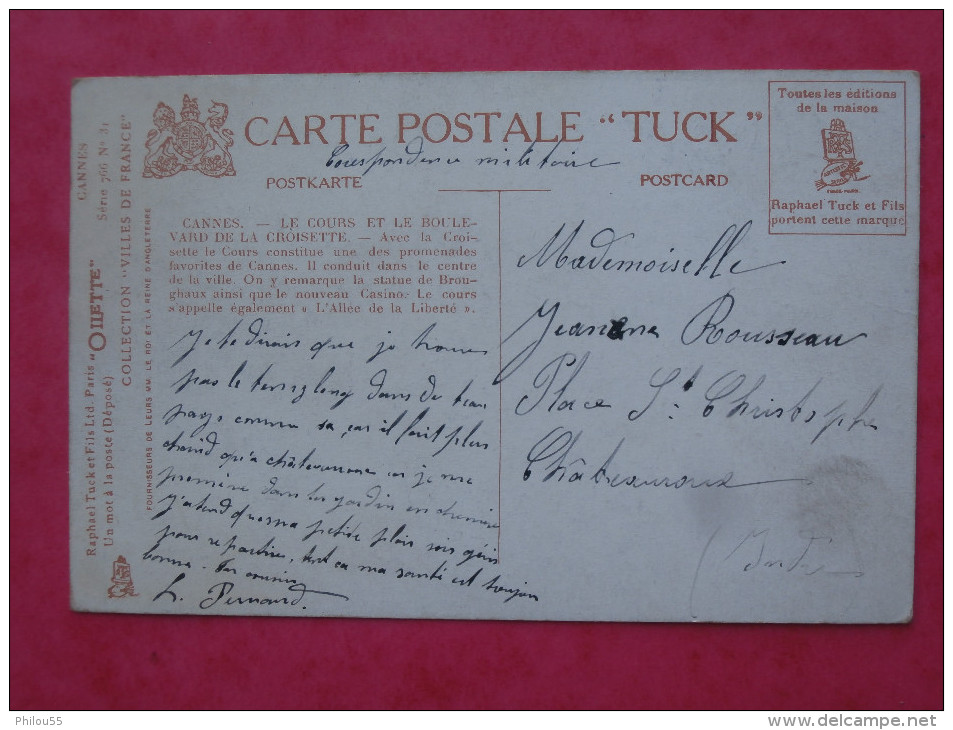 CARTE POSTALE "TUCK"
Corespondence militaire
POSTKARTE
POSTCARD
Toutes les éditions
de la maison
Raphael Tuck et Fils
portent cette marque
CANNES
Série 766 No 31
COLLECTION "VILLES DE FRANCE"
Raphael Tuck et Fils Ltd. Paris "OILETTE"
Un mot à la poste (Déposé)
FOURNISSEURS DE LEURS MM. LE ROI ET LA REINE D'ANGLETERRE
CANNES. — LE COURS ET LE BOULE-
VARD DE LA CROISETTE. — Avec la Croi-
sette le Cours constitue une des promenades
favorites de Cannes. Il conduit dans le centre
de la ville. On y remarque la statue de Brou-
ghaux ainsi que le nouveau Casino. Le cours
s'appelle également « L'Allée de la Liberté ».
Je te dirais que je trouve
pas le temp long dans de beau
pays comme sa, car il fait plus
chaud qu'a châteauroux on je me
promène dans les jardin en chemise
j'atend que ma petite plais sois guéri
pour repartire, tout ca ma santé est toujour
bonne. Ton cousin
L. Pernard.
Mademoiselle
Jeanne Rousseau
Place St. Christophe
Châteauroux
(Indre
Philou55
www.delcampe.net